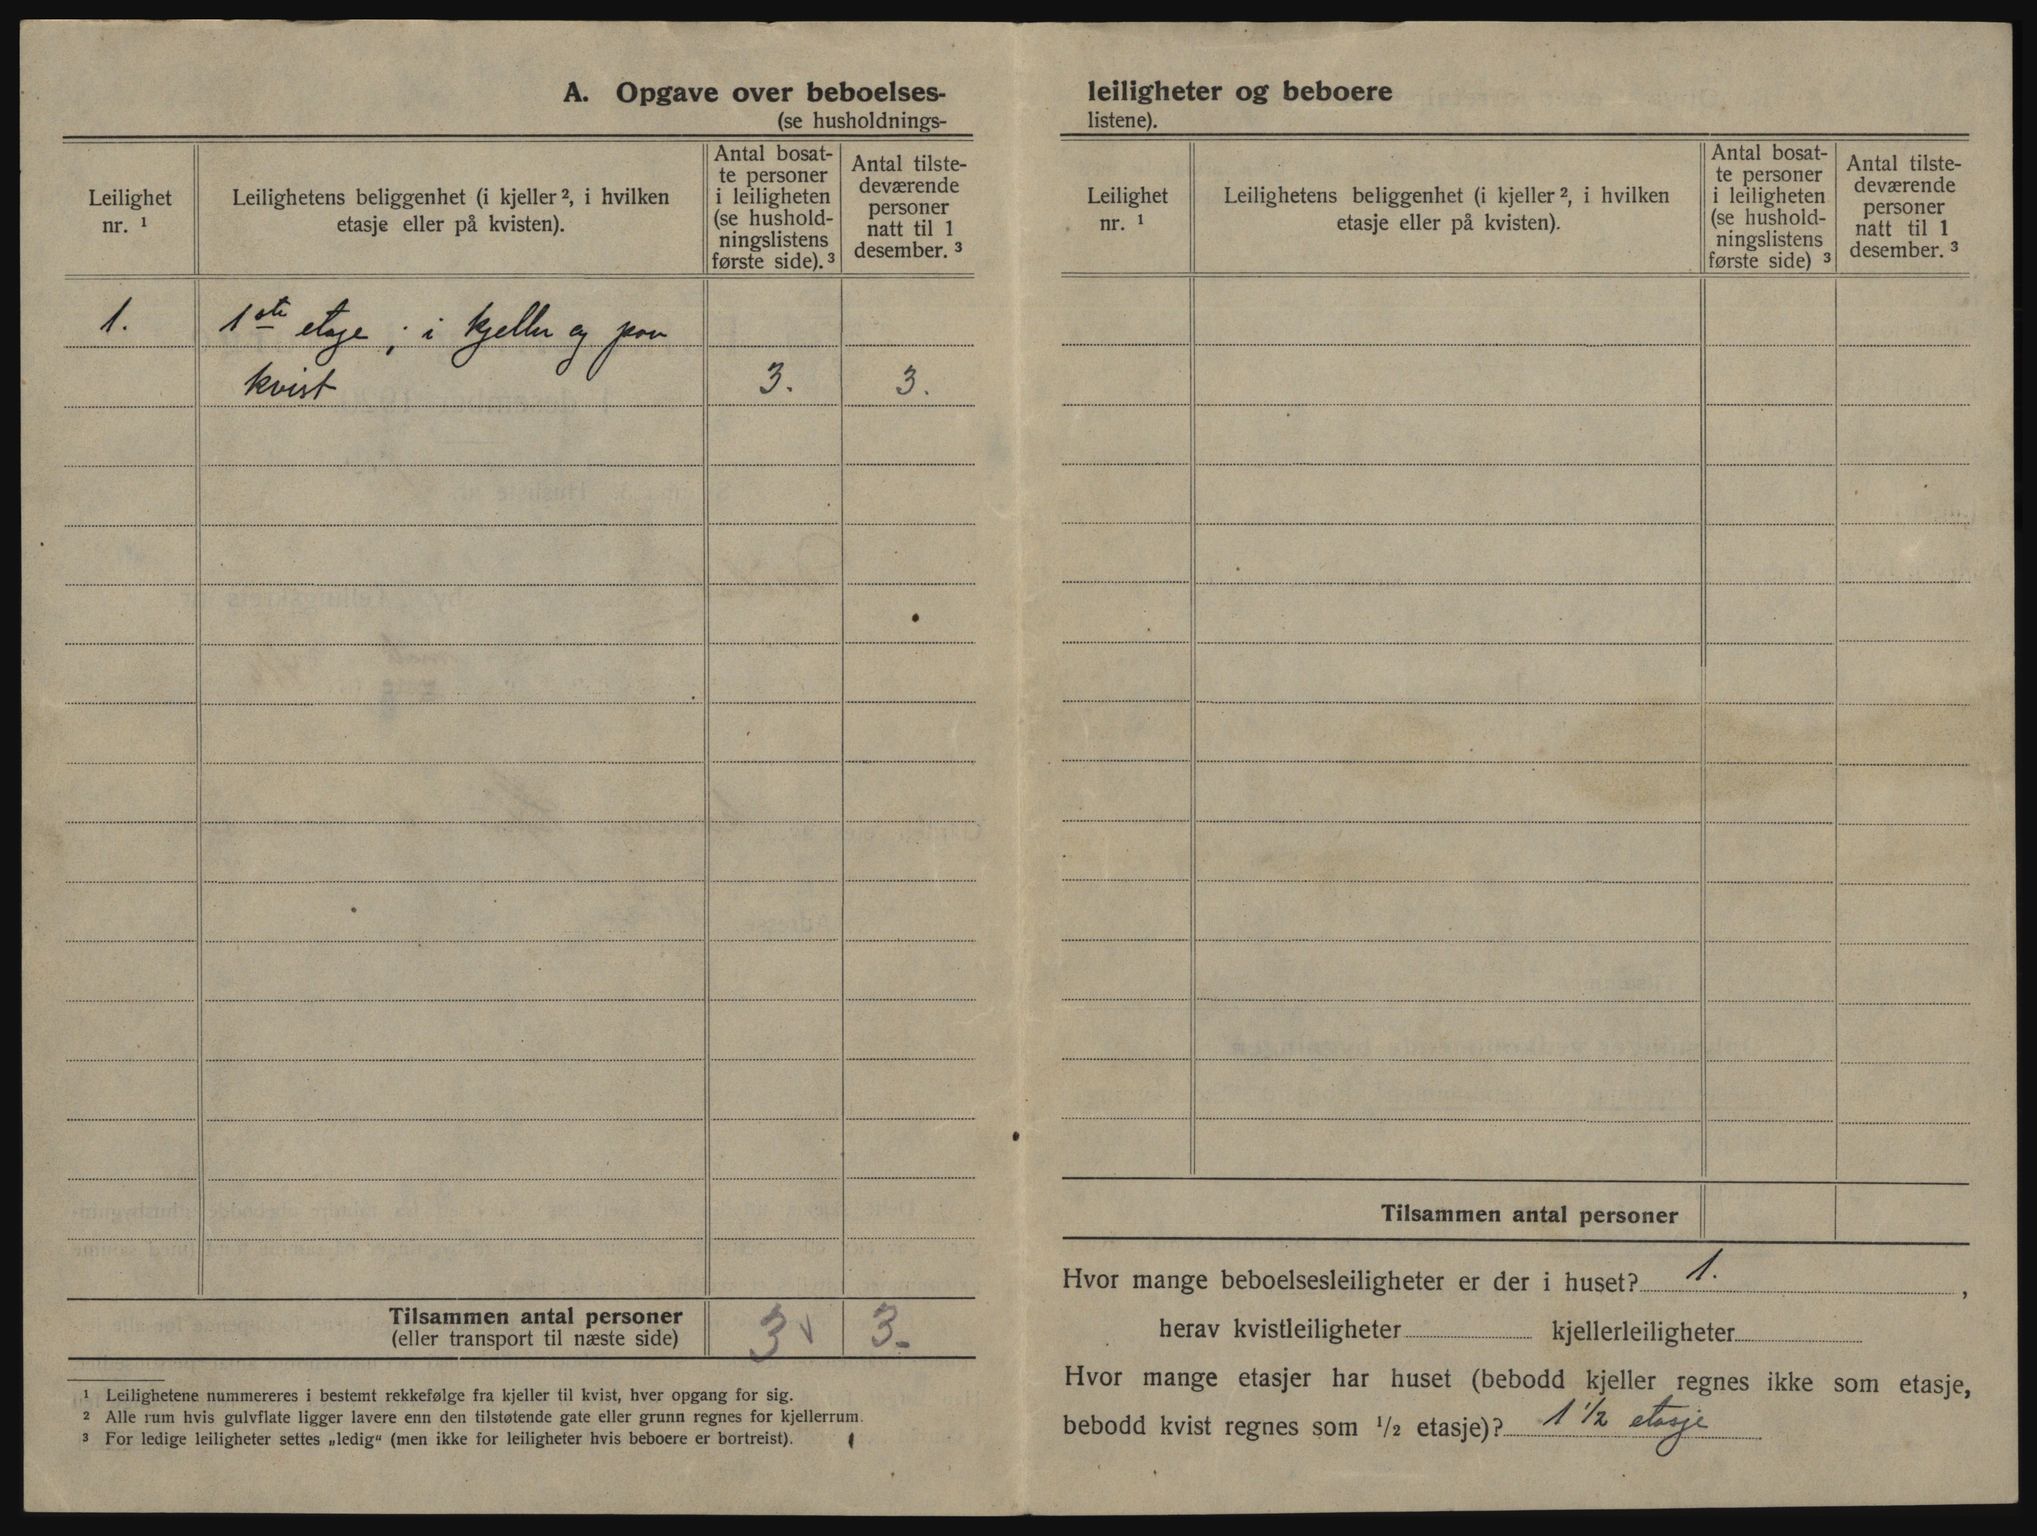 A. Opgave over beboelses-
(se husholdnings-
Leilighet
nr. ¹
Leilighetens beliggenhet (i kjeller ², i hvilken
etasje eller på kvisten).
Antal bosat-
te personer
i leiligheten
(se hushold-
ningslistens
første side). ³
Antal tilste-
deværende
personer
natt til 1
desember. ³
1. 1ste etage ; i kjeller og paa
kvist 3. 3.
Tilsammen antal personer 3 3.
(eller transport til næste side)
¹ Leilighetene nummereres i bestemt rekkefølge fra kjeller til kvist, hver opgang for sig.
² Alle rum hvis gulvflate ligger lavere enn den tilstøtende gate eller grunn regnes for kjellerrum.
³ For ledige leiligheter settes „ledig“ (men ikke for leiligheter hvis beboere er bortreist).
leiligheter og beboere
listene).
Leilighet
nr. ¹
Leilighetens beliggenhet (i kjeller ², i hvilken
etasje eller på kvisten).
Antal bosat-
te personer
i leiligheten
(se hushold-
ningslistens
første side) ³
Antal tilste-
deværende
personer
natt til 1
desember. ³
Tilsammen antal personer
Hvor mange beboelsesleiligheter er der i huset? 1. ,
herav kvistleiligheter kjellerleiligheter
Hvor mange etasjer har huset (bebodd kjeller regnes ikke som etasje,
bebodd kvist regnes som ½ etasje)? 1 ½ etasje